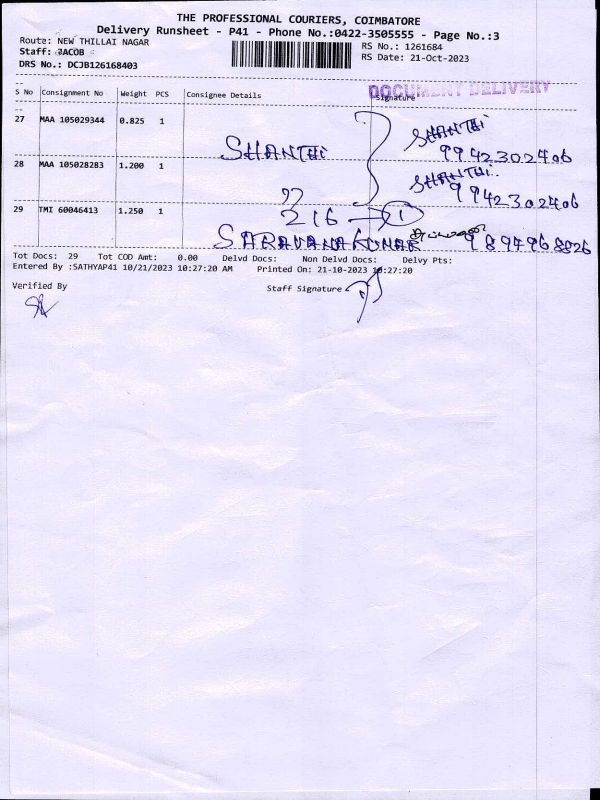 THE PROFESSIONAL COURIERS, COIMBATORE
Delivery Runsheet - P41 - Phone No.:0422-3505555 - Page No.:3
Route: NEW THILLAI NAGAR
RS No.: 1261684
Staff: JACOB
RS Date: 21-Oct-2023
DRS No.: DCJB126168403
DOCUMENT DELIVERY
S No Consignment No Weight PCS Consignee Details Signature
27 MAA 105029344 0.825 1
SHANTHI
SHANTHI
9942302406
28 MAA 105028283 1.200 1
SHANTHI
9942302406
29 TMI 60046413 1.250 1
216 → 1
SARAVANAKUMAR
9894968026
Tot Docs: 29 Tot COD Amt: 0.00 Delvd Docs: Non Delvd Docs: Delvy Pts:
Entered By :SATHYAP41 10/21/2023 10:27:20 AM Printed On: 21-10-2023 10:27:20
Verified By
Staff Signature